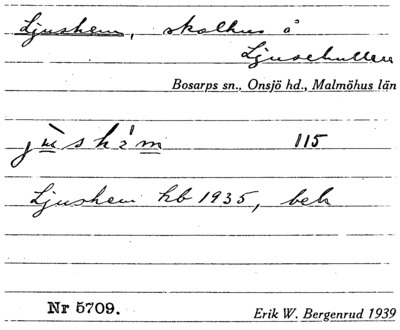 Ljushem, skolhus å
Ljusekullen
Bosarps sn., Onsjö hd., Malmöhus län
115
Ljushem hb 1935, beb
Nr 5709.
Erik W. Bergenrud 1939